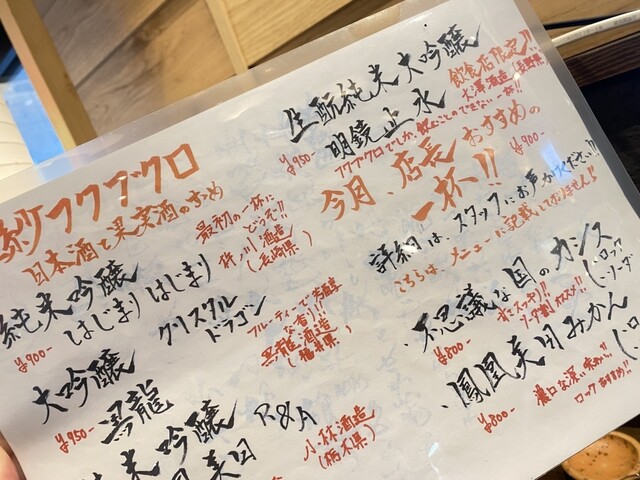 紗フクブクロ
日本酒と果実酒のすゝめ
純米吟醸
はじまりはじまり
¥900-
最初の一杯に
どうぞ!!
杵ノ川酒造
(長崎県)
大吟醸 クリスタル
黒龍 ドラゴン
¥950-
フルーティーで芳醇
な香り!!
黒龍酒造
(福井県)
純米吟醸
美田 R&A
小林酒造
(栃木県)
生酛純米大吟醸
明鏡止水
¥950-
飲食店限定!!
大澤酒造(長野県)
フクブクロでしか飲むことのできない一杯!!
今月、店長おすすめの
一杯!!
¥900-
詳細は、スタッフにお声がけ下さい!!
こちらは、メニューに記載しておりません!!
・不思議な国のカシス
¥800-
甘さスッキリ!!
ソーダ割りカススメ!!
ロック
ソーダ
・鳳凰美田みかん
¥800-
濃口な深い味わい!!
ロックおすすめ!!